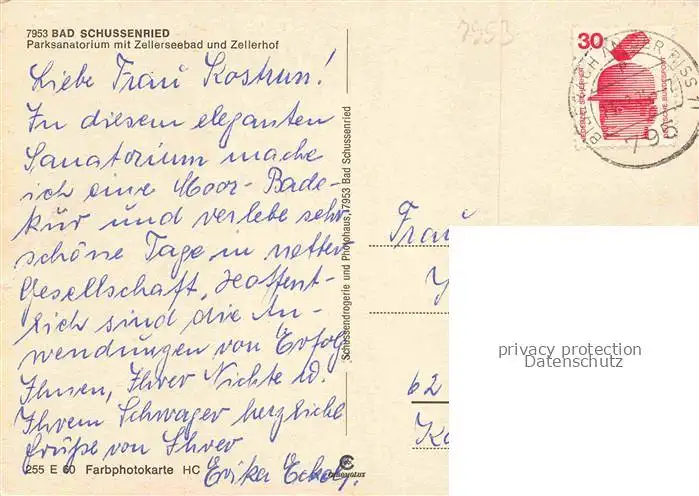 7953 BAD SCHUSSENRIED
Parksanatorium mit Zellerseebad und Zellerhof
7953
Liebe Frau Kostrun!
In diesem eleganten
Sanatorium mache
ich eine Moor-Bade-
kur und verlebe sehr
schöne Tage in netter
Gesellschaft. Hoffent-
lich sind die An-
wendungen von Erfog.
Ihnen, Ihrer Nichte u.
Ihrem Schwager herzliche
Grüße von Ihrer
Erika
255 E 60 Farbphotokarte HC
Schussendrogerie und Photohaus, 7953 Bad Schussenried
30
DEUTSCHE BUNDESPOST
AN DER RISS 1
795
Frau
62
privacy protection
Datenschutz